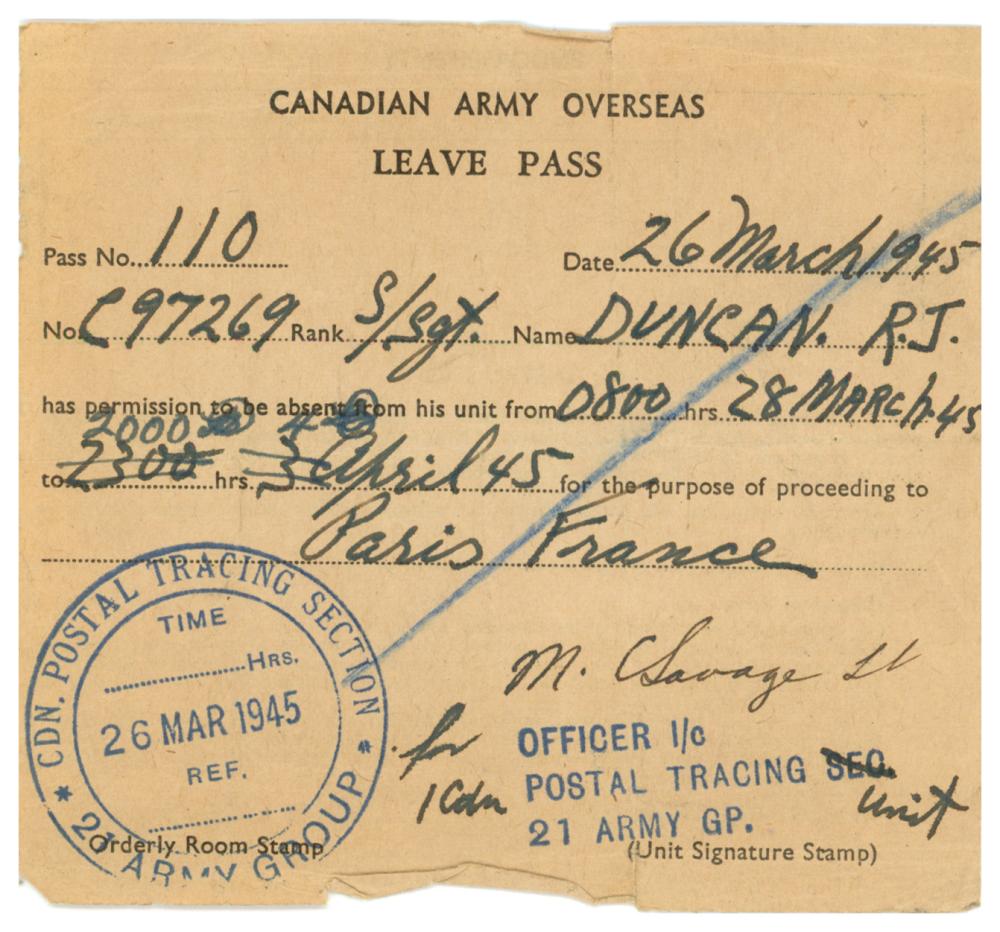 CANADIAN ARMY OVERSEAS
LEAVE PASS
Pass No. 110 Date 26 March 1945
No. C97269 Rank S/Sgt. Name DUNCAN. R.J.
has permission to be absent from his unit from 0800 hrs. 28 MARCH. 45
2000 4
to 2300 hrs. 3 April 45 for the purpose of proceeding to
Paris France
CDN. POSTAL TRACING SECTION
TIME
HRS.
26 MAR 1945
REF.
* 21 ARMY GROUP *
Orderly Room Stamp
M. Savage Lt
for OFFICER I/c
1 Cdn POSTAL TRACING SEC. Unit
21 ARMY GP.
(Unit Signature Stamp)